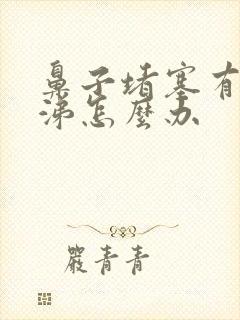 鼻子堵塞有
涕怎麼办
嚴青青